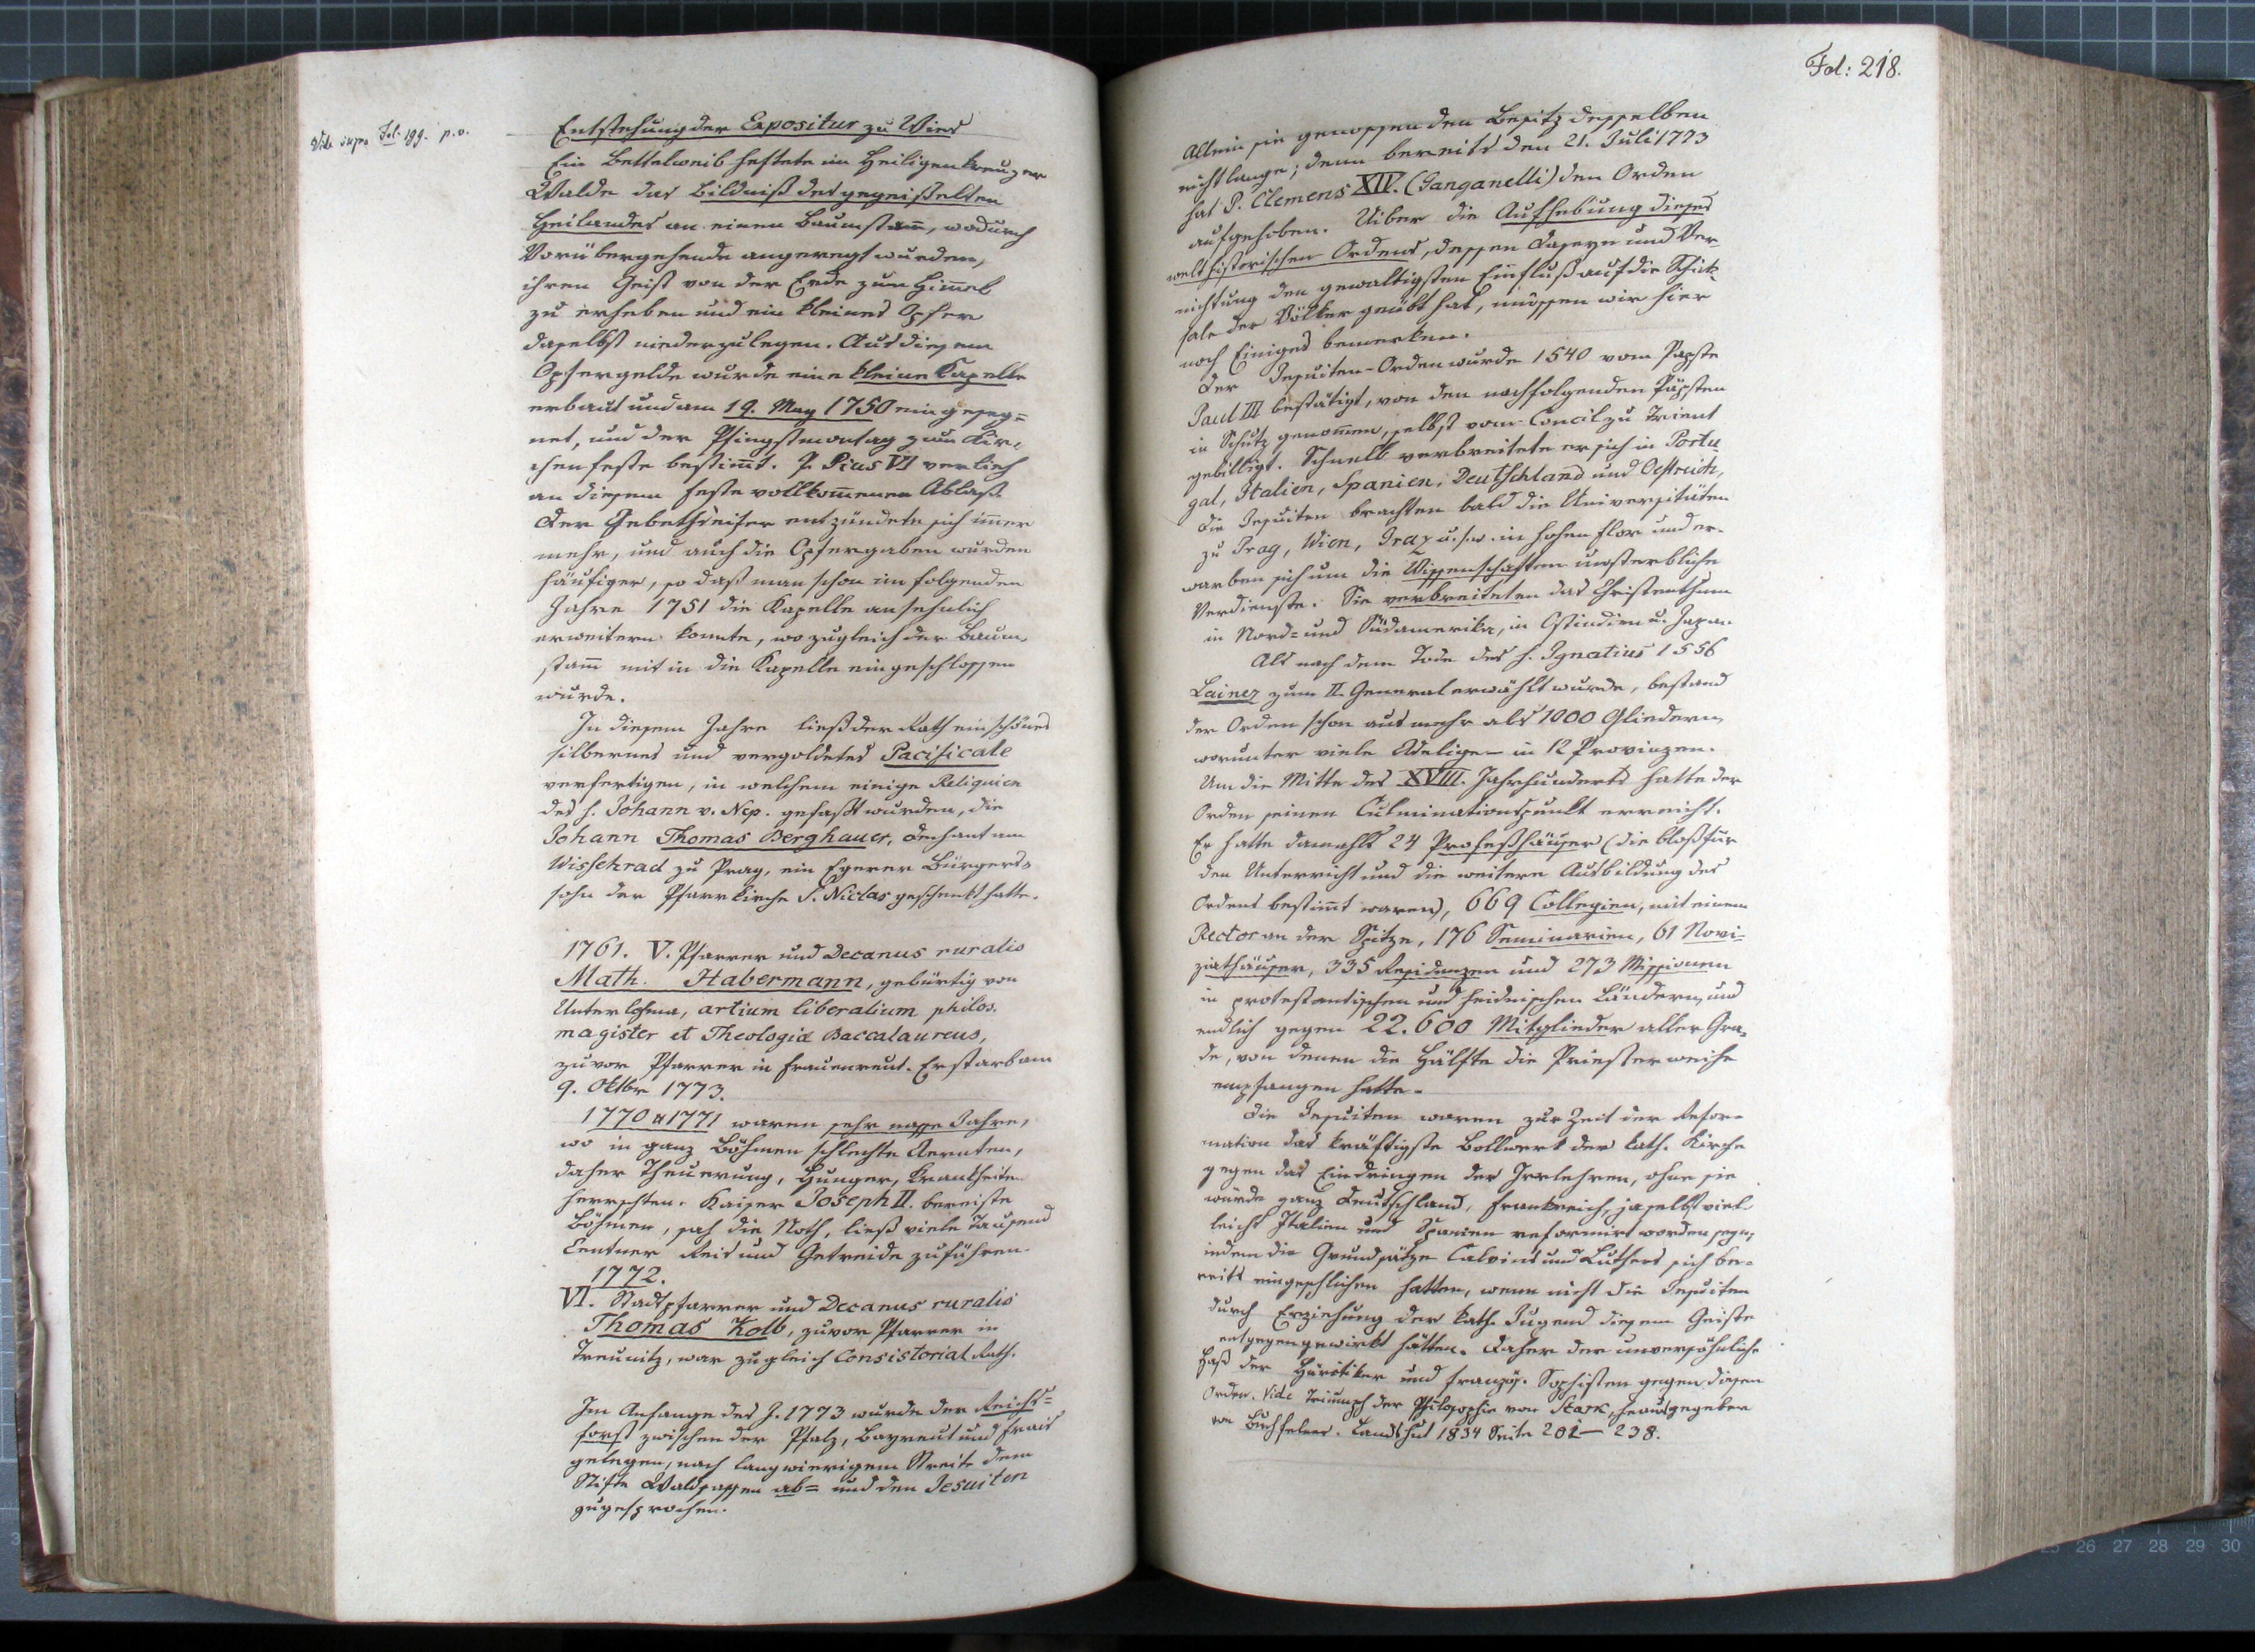 Vide supra Fol. 199. p. v.
Entstehung der Expositur zu Wies
Ein Bettelweib heftete im Heiligenkreuzer
Walde das Bildniß des gegeißelten
Heilandes an einen Baumstam̅, wodurch
Vorübergehende angeregt wurden,
ihren Geist von der Erde zum Him̅el
zu erheben und ein kleines Opfer
daselbst niederzulegen. Aus diesem
Opfergelde wurde eine kleine Kapelle
erbaut und am 19. May 1750 eingeseg=
net, und der Pfingstmontag zum Kir-
chenfeste bestim̅t. P. Pius VI verlieh
an diesem Feste vollkom̅enen Ablaß.
Der Gebethseifer entzündete sich im̅er
mehr, und auch die Opfergaben wurden
häufiger, so daß man schon im folgenden
Jahre 1751 die Kapelle ansehnlich
erweitern konnte, wo zugleich der Baum
stam̅ mit in die Kapelle eingeschlossen
wurde.
In diesem Jahre ließ der Rath ein schönes
silbernes und vergoldetes Pacificale
verfertigen, in welchem einige Reliquien
des h. Johann v. Nep. gefaßt wurden, die
Johann Thomas Berghauer, Dechant am
Wissehrad zu Prag, ein Egerer Bürgers-
sohn der Pfarrkirche S. Niclas geschenkt hatte.
1761. V. Pfarrer und Decanus ruralis
Math. Habermann, gebürtig von
Unterlohma, artium liberalium philos.
magister et Theologiæ Baccalaureus,
zuvor Pfarrer in Frauenreut. Er starb am
9. Oktbr 1773.
1770 u 1771 waren sehr nasse Jahre,
wo in ganz Böhmen schlechte Aernten,
daher Theuerung, Hunger, Krankheiten
herrschten. Kaiser Joseph II. bereiste
Böhmen, sah die Noth, ließ viele Tausend
Centner Reis und Getreide zuführen.
1772.
VI. Stadtpfarrer und Decanus ruralis
Thomas Kolb, zuvor Pfarrer in
Treunitz, war zugleich Consistorial Rath.
Im Anfange des J. 1773 wurde der Reichs=
forst zwischen der Pfalz, Bayreut und Frais
gelegen, nach langwierigem Streite dem
Stifte Waldsassen ab= und den Jesuiten
zugesprochen.
Fol: 218.
Allein sie genossen den Besitz desselben
nicht lange; denn bereits den 21. Juli 1773
hat P. Clemens XIV. (Ganganelli) den Orden
aufgehoben. Uiber die Aufhebung dieses
welthistorischen Ordens, dessen Daseyn und Ver-
nichtung den gewaltigsten Einfluß auf die Schick-
sale der Völker geübt hat, müssen wir hier
noch Einiges bemerken.
Der Jesuiten-Orden wurde 1540 vom Papste
Paul III bestätigt, von den nachfolgenden Päpsten
in Schutz genom̅en, selbst vom Concil zu Trient
gebilligt. Schnell verbreitete er sich in Portu
gal, Italien, Spanien, Deutschland und Oestreich,
die Jesuiten brachten bald die Universitäten
zu Prag, Wien, Graz u. s. w. in hohen Flor und er-
warben sich um die Wissenschaften unsterbliche
Verdienste. Sie verbreiteten das Christenthum
in Nord= und Südamerika, in Ostindien u. Japan.
Als nach dem Tode des h. Ignatius 1556
Lainez zum II. General erwählt wurde, bestand
der Orden schon aus mehr als 1000 Gliedern,
worunter viele Adelige – in 12 Provinzen.
Um die Mitte des XVIII. Jahrhunderts hatte der
Orden seinen Culminationspunkt erreicht.
Er hatte damahls 24 Profeßhäuser (die bloß für
den Unterricht und die weitere Ausbildung des
Ordens bestim̅t waren), 669 Collegien, mit einem
Rector an der Spitze, 176 Seminarien, 61 Novi=
ziathäuser, 335 Residenzen und 273 Missionen
in protestantischen und heidnischen Ländern, und
endlich gegen 22.600 Mitglieder aller Gra-
de, von denen die Hälfte die Priesterweihe
empfangen hatte.
Die Jesuiten waren zur Zeit der Refor-
mation das kräftigste Bollwerk der kath. Kirche
gegen das Eindringen der Irrlehren, ohne sie
würde ganz Deutschland, Frankreich, ja selbst viel-
leicht Italien und Spanien reformirt worden seyn,
indem die Grundsätze Calvins und Luthers sich be-
reits eingeschlichen hatten, wenn nicht die Jesuiten
durch Erziehung der kath. Jugend diesem Geiste
entgegengewirkt hätten. Daher der unversöhnliche
Haß der Häretiker und französ. Sophisten gegen diesen
Orden. Vide Triumph der Philosophie von Stark, herausgegeben
von Buchfelner. Landshut 1834 Seite 201–238.